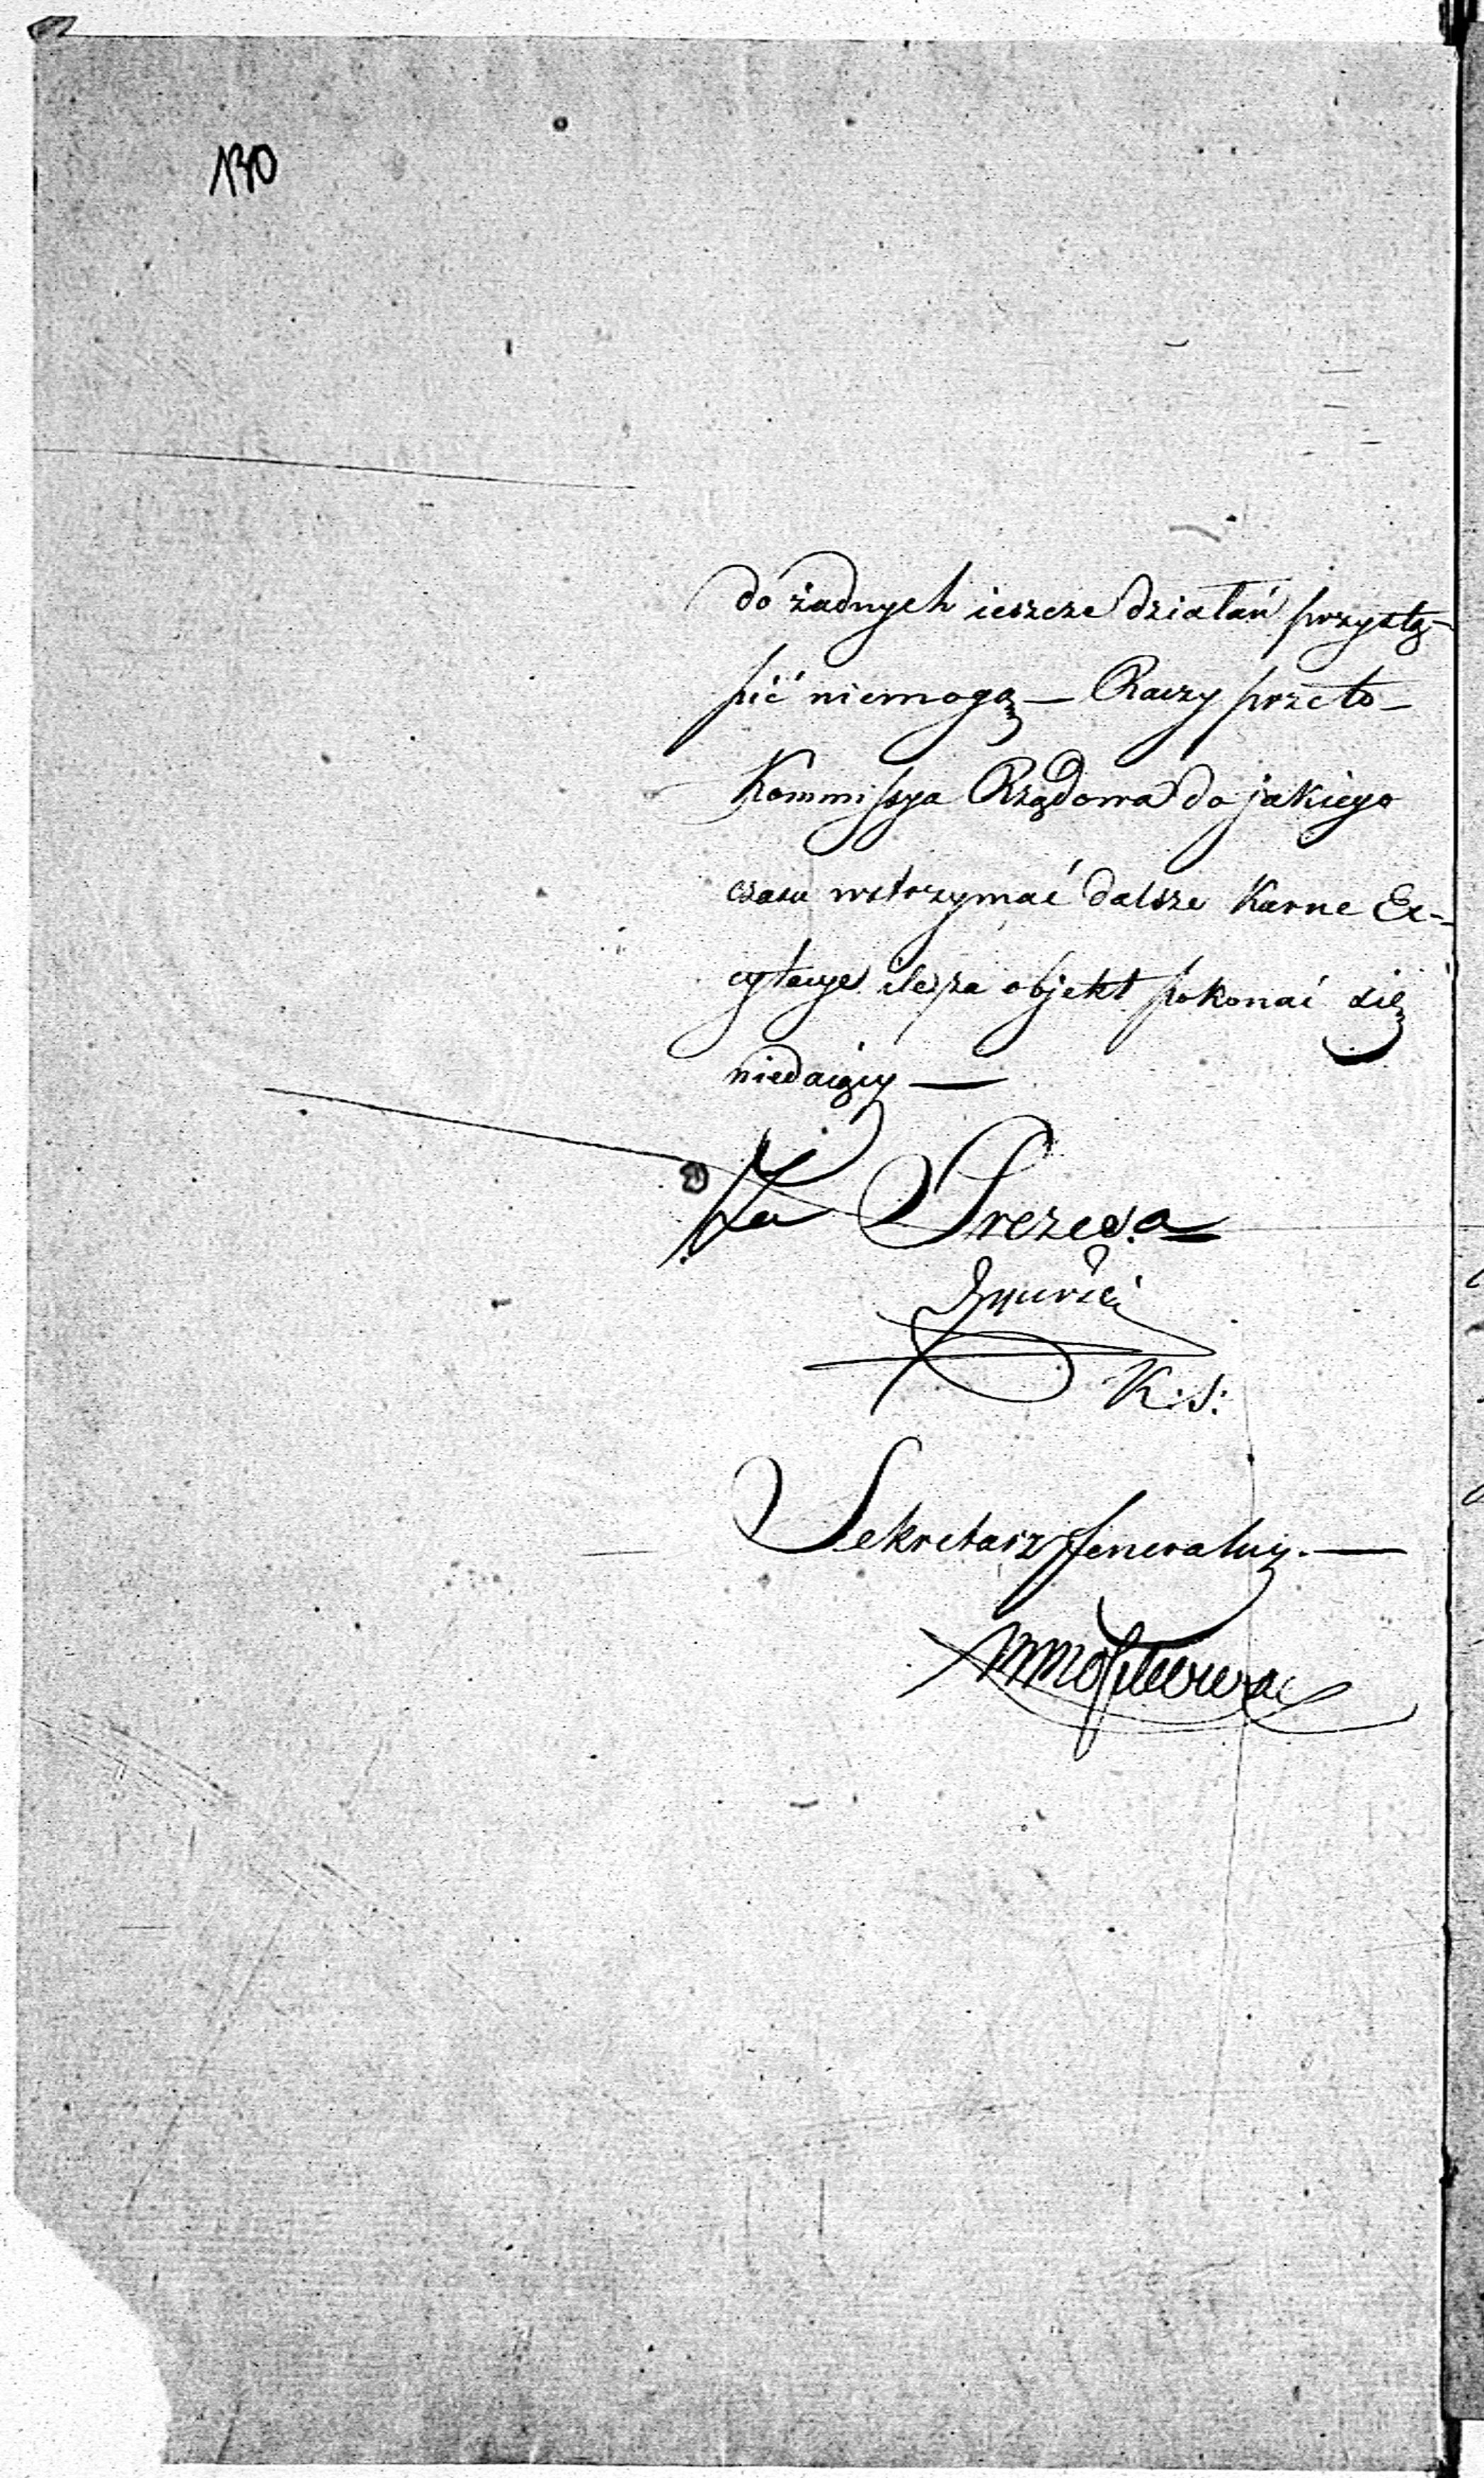 130
do żadnych ieszcze działań przystą-
pić niemogą — Raczy przeto —
Kommissya Rządowa do jakiego
czasu wstrzymać dalsze Karne Ex-
cytacye ile za objekt pokonać się
niedaiący —
Za Prezesa
K: S:
Sekretarz Jeneralny. —